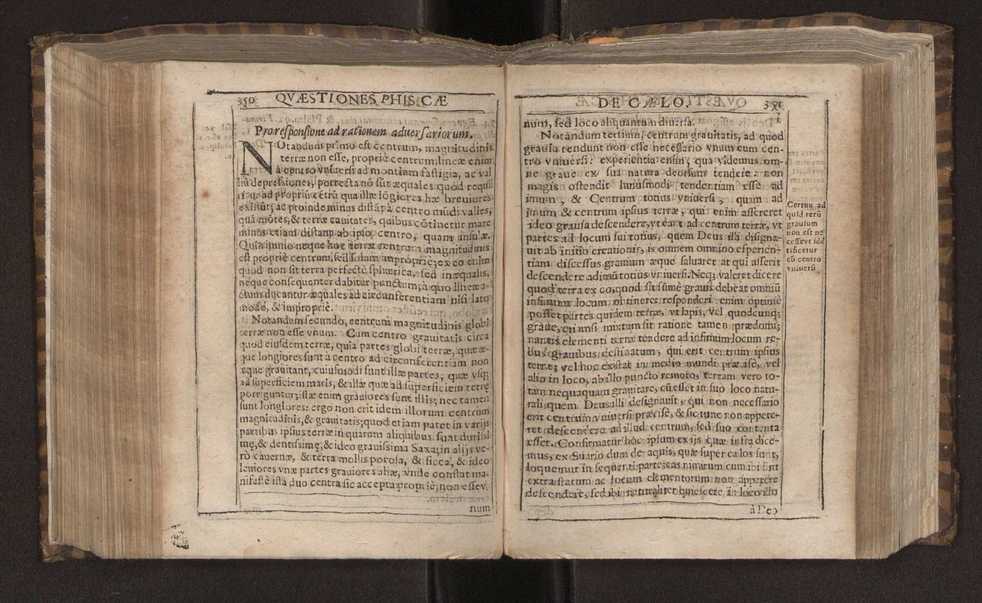 350 QVÆSTIONES PHISICÆ
Pro responsione ad rationem aduersariorum.
NOtandum primo est centrum, magnitudinis
terræ non esse, propriè centrum: lineæ enim
ad montium fastigia, ac val
lium depressiones, porrectæ nõ sũt æquales quòd requi
ad propriũ cẽtrũ quia illæ lõgiores hæ breuiores
existũt; ac proinde minus distãt à centro mũdi valles,
quã mõtes, & terræ cauitates, quibus cõtinetur mare
minus etiam distant ab ipso centro, quam insulæ.
Quin immo neque hoc terræ centrum magnitudinis
est propriè centrum, sed solum impropriè; ex eo enim
quod non sit terra perfectè sphærica, sed inæqualis,
neque consequenter dabitur punctum, à quo lineæ
ctum ducantur æquales ad circunferentiam nisi lato
modo, & impropriè.
Notandum secundo, centrum magnitudinis globi
terræ non esse vnum. Cum centro grauitatis circa
quod eiusdem terræ, quia partes globi terræ, quæ æ-
què longiores sunt à centro ad circunferentiam non
æque grauitant, cuiusmodi sunt illæ partes, quæ vsq;
ad superficiem maris, & illæ quæ ad superficiem terræ
porriguntur; istæ enim grauiores sunt illis; nec tamen
sunt longiores: ergo non erit idem illorum centrum
magnitudinis, & grauitatis; quod etiam patet in varijs
partibus ipsius terræ in quarum aliquibus sunt durissi
mę, & dentissimę, & ideo grauissima Saxa; in alijs ve-
rò cauernæ, & terra mollis porosa, & sicca, & ideo
leuiores vnæ partes grauiores aliæ, vnde constat ma-
nifestè ista duo centra sic accepta propriè, non esse v-
num
DE CÆLO. 351
num, sed loco aliquantum diuersa.
Notandum tertium, centrum grauitatis, ad quod
grauia tendunt non esse necessario vnum cum cen-
tro vniuersi: experientia enim, qua videmus om-
ne graue ex sui natura deorsum tendere: non
magis ostendit huiusmodi tendentiam esse ad
imum, & Centrum totius vniuersi, quam ad
imum & centrum ipsius terræ, qui enim assereret
ideo grauia descendere, vt eant ad centrum terræ, vt
partes ad locum sui totius, quem Deus illi disigna-
uit ab initio creationis, is omnem omnino experien-
tiam discessus grauium æque saluaret at qui asserit
descendere ad imũ totius vniuersi. Neq; valeret dicere
quod terra ex eo quod sit summè grauis debeat omniũ
infimum locum obtinere: responderi enim optimè
posset partes quidem terræ, vt lapis, vel quodcunq;
graue, etiamsi mixtum sit ratione tamen prædomi-
nantis elementi terræ tendere ad infimum locum re-
bus grauibus destinatum, qui est centrum ipsius
terræ; vel hoc existat in medio mundi præcisè, vel
alio in loco, ab illo puncto remoto; terram vero to-
tam nequaquam grauitare, cũ esset in suo loco natu-
rali quem. Deus illi designauit, qui non necessario
est centrum vniuersi præcisè, & sic tunc non appete-
ret descendere ad illud centrum, sed suo contenta
esset. Confirmatur hoc ipsum ex ijs quæ infra dice-
mus, ex Suario dum de aquis, quæ super cælos sunt,
loquemur in sequenti parte; eas nimirum cum ibi sint
extra statum ac locum elementorum non appetere
descendere, sed ibi naturaliter quiescere, in loco isto
à Deo
Centrũ ad
quod terũ
grauium
non est ne
cessariò idẽ
cum centro
vniuersi